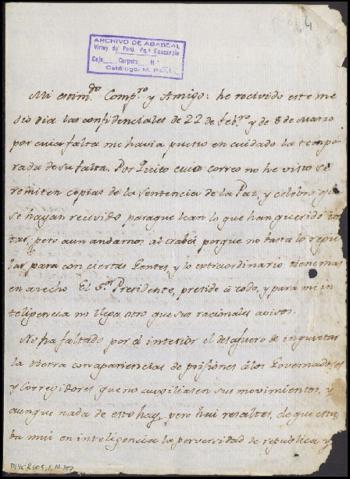 4
ARCHIVO DE ABASCAL
Virrey del Perú
Caja Carpeta N.º
Catálogo
Mi estim.do Comp.ro y Amigo: he recivido este me
dio dia las confidenciales de 22 de feb.ro y de 8 de Marzo
por cuia falta me havia puesto en cuidado la tempo
rada de su falta. Por Quito cuio correo no he visto se
remiten copias de la Sentencia de la Paz, y celebro q.e
se hayan recivido para que lean lo que han querido
tar, pero aun andamos al
para con ciertas Gentes, y lo extraordinario tiene mas
en acecho. El S.or Presidente, preside á todo, y para mi in
teligencia no llega otro que sus racionales avisos.
No ha faltado por el interior el desafuero de inquietar
la tierra con apariencias de prisiones á los Governadores
y Corregidores que no auxiliasen sus movimientos, y
aunque nada de esto hay, pero hui resaltes, de que esta
ba mui en inteligencia la perversidad de republica y